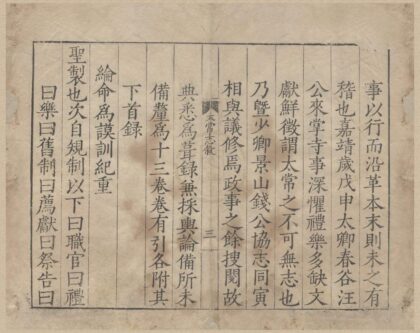 事以行而沿革本末則未之有
稽也嘉靖歲戊申太卿春谷汪
公來掌寺事深懼禮樂多缺文
獻鮮徵謂太常之不可無志也
乃暨少卿景山錢公協志同寅
相與議修焉政事之餘搜閱故
三
典悉為葺錄無採輿論備所未
備釐為十三卷卷有引各附其
下首錄
綸命為謨訓紀重
聖製也次自規制以下曰職官曰禮
曰樂曰舊制曰薦獻曰祭告曰